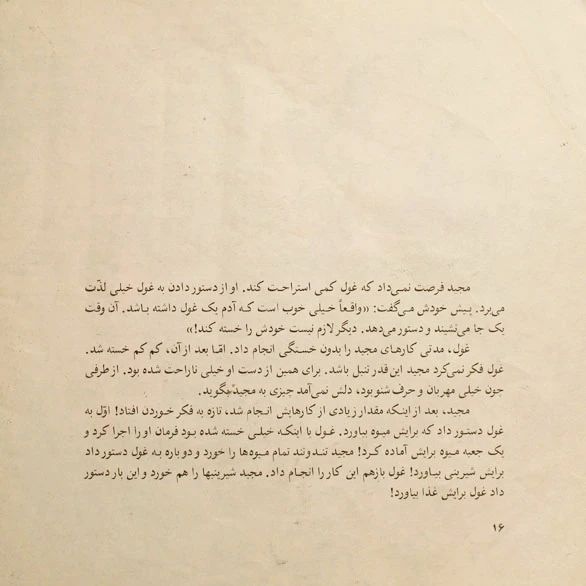 مجید فرصت نمی‌داد که غول کمی استراحت کند. او از دستور دادن به غول خیلی لذّت
می‌برد. پیش خودش می‌گفت: «واقعاً خیلی خوب است که آدم یک غول داشته باشد. آن وقت
یک جا می‌نشیند و دستور می‌دهد. دیگر لازم نیست خودش را خسته کند!»
غول، مدتی کارهای مجید را بدون خستگی انجام داد. امّا بعد از آن، کم کم خسته شد.
غول فکر نمی‌کرد مجید این قدر تنبل باشد. برای همین از دست او خیلی ناراحت شده بود. از طرفی
چون خیلی مهربان و حرف شنو بود، دلش نمی‌آمد چیزی به مجید بگوید.
مجید، بعد از اینکه مقدار زیادی از کارهایش انجام شد، تازه به فکر خوردن افتاد! اوّل به
غول دستور داد که برایش میوه بیاورد. غول با اینکه خیلی خسته شده بود فرمان او را اجرا کرد و
یک جعبه میوه برایش آماده کرد! مجید تندوتند تمام میوه‌ها را خورد و دوباره به غول دستور داد
برایش شیرینی بیاورد! غول بازهم این کار را انجام داد. مجید شیرینیها را هم خورد و این بار دستور
داد غول برایش غذا بیاورد!
۱۶